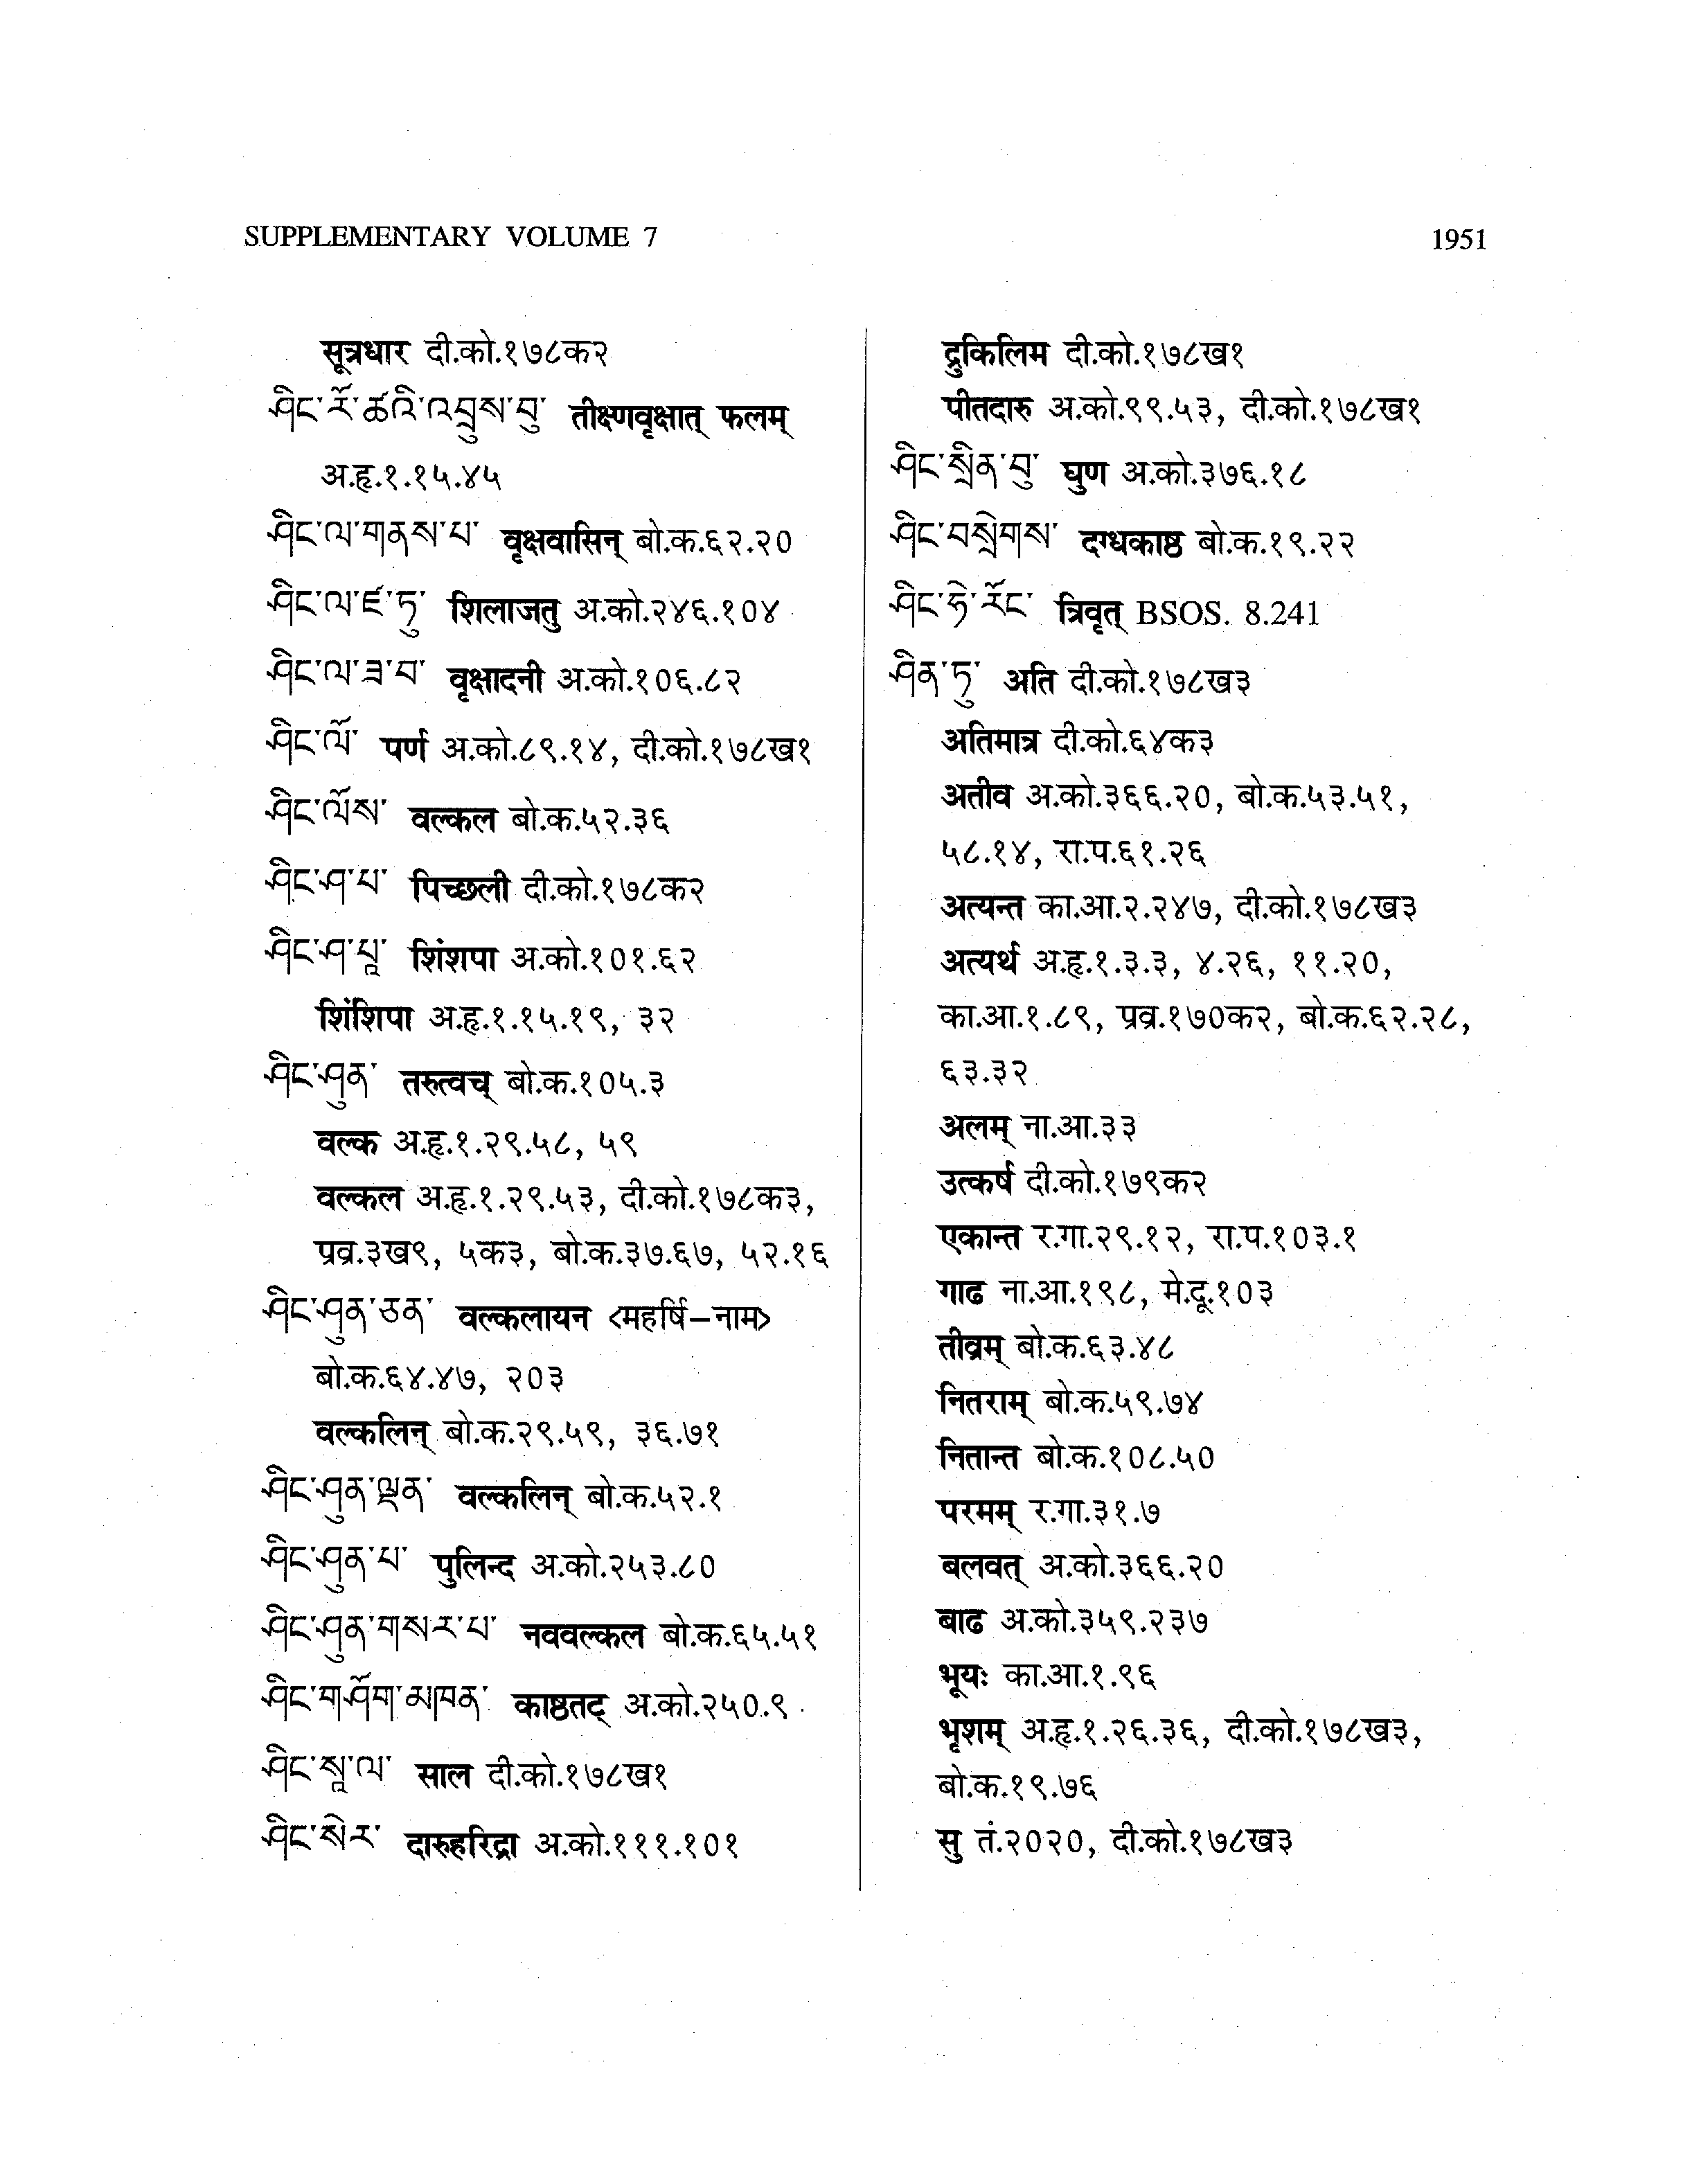 SUPPLEMENTARY VOLUME 7
1951
सूत्रधार दी.को.१७८क२
ཤིང་རོ་ཚའི་འབྲུས་བུ་ तीक्ष्णवृक्षात् फलम्
अ.हृ.१.१५.४५
ཤིང་ལ་གནས་པ་ वृक्षवासिन् बो.क.६२.२०
ཤིང་ལ་ཛ་ཏུ་ शिलाजतु अ.को.२४६.१०४
ཤིང་ལ་ཟ་བ་ वृक्षादनी अ.को.१०६.८२
ཤིང་ལོ་ पर्ण अ.को.८९.१४, दी.को.१७८ख१
ཤིང་ལོས་ वल्कल बो.क.५२.३६
ཤིང་ཤ་པ་ पिच्छली दी.को.१७८क२
ཤིང་ཤ་པཱ་ शिंशपा अ.को.१०१.६२
शिंशिपा अ.हृ.१.१५.१९, ३२
ཤིང་ཤུན་ तरुत्वच् बो.क.१०५.३
वल्क अ.हृ.१.२९.५८, ५९
वल्कल अ.हृ.१.२९.५३, दी.को.१७८क३,
प्रव्र.३ख९, ५क३, बो.क.३७.६७, ५२.१६
ཤིང་ཤུན་ཅན་ वल्कलायन <महर्षि–नाम>
बो.क.६४.४७, २०३
वल्कलिन् बो.क.२९.५९, ३६.७१
ཤིང་ཤུན་ལྡན་ वल्कलिन् बो.क.५२.१
ཤིང་ཤུན་པ་ पुलिन्द अ.को.२५३.८०
ཤིང་ཤུན་གསར་པ་ नववल्कल बो.क.६५.५१
ཤིང་གཤོག་མཁན་ काष्ठतट् अ.को.२५०.९
ཤིང་སཱ་ལ་ साल दी.को.१७८ख१
ཤིང་སེར་ दारुहरिद्रा अ.को.१११.१०१
द्रुकिलिम दी.को.१७८ख१
पीतदारु अ.को.९९.५३, दी.को.१७८ख१
ཤིང་སྲིན་བུ་ घुण अ.को.३७६.१८
ཤིང་བསྲེགས་ दग्धकाष्ठ बो.क.१९.२२
ཤིང་ཧེ་རོང་ त्रिवृत् BSOS. 8.241
ཤིན་ཏུ་ अति दी.को.१७८ख३
अतिमात्र दी.को.६४क३
अतीव अ.को.३६६.२०, बो.क.५३.५१,
५८.१४, रा.प.६१.२६
अत्यन्त का.आ.२.२४७, दी.को.१७८ख३
अत्यर्थ अ.हृ.१.३.३, ४.२६, ११.२०,
का.आ.१.८९, प्रव्र.१७०क२, बो.क.६२.२८,
६३.३२
अलम् ना.आ.३३
उत्कर्ष दी.को.१७९क२
एकान्त र.गा.२९.१२, रा.प.१०३.१
गाढ ना.आ.१९८, मे.दू.१०३
तीव्रम् बो.क.६३.४८
नितराम् बो.क.५९.७४
नितान्त बो.क.१०८.५०
परमम् र.गा.३१.७
बलवत् अ.को.३६६.२०
बाढ अ.को.३५९.२३७
भूयः का.आ.१.९६
भृशम् अ.हृ.१.२६.३६, दी.को.१७८ख३,
बो.क.१९.७६
सु तं.२०२०, दी.को.१७८ख३